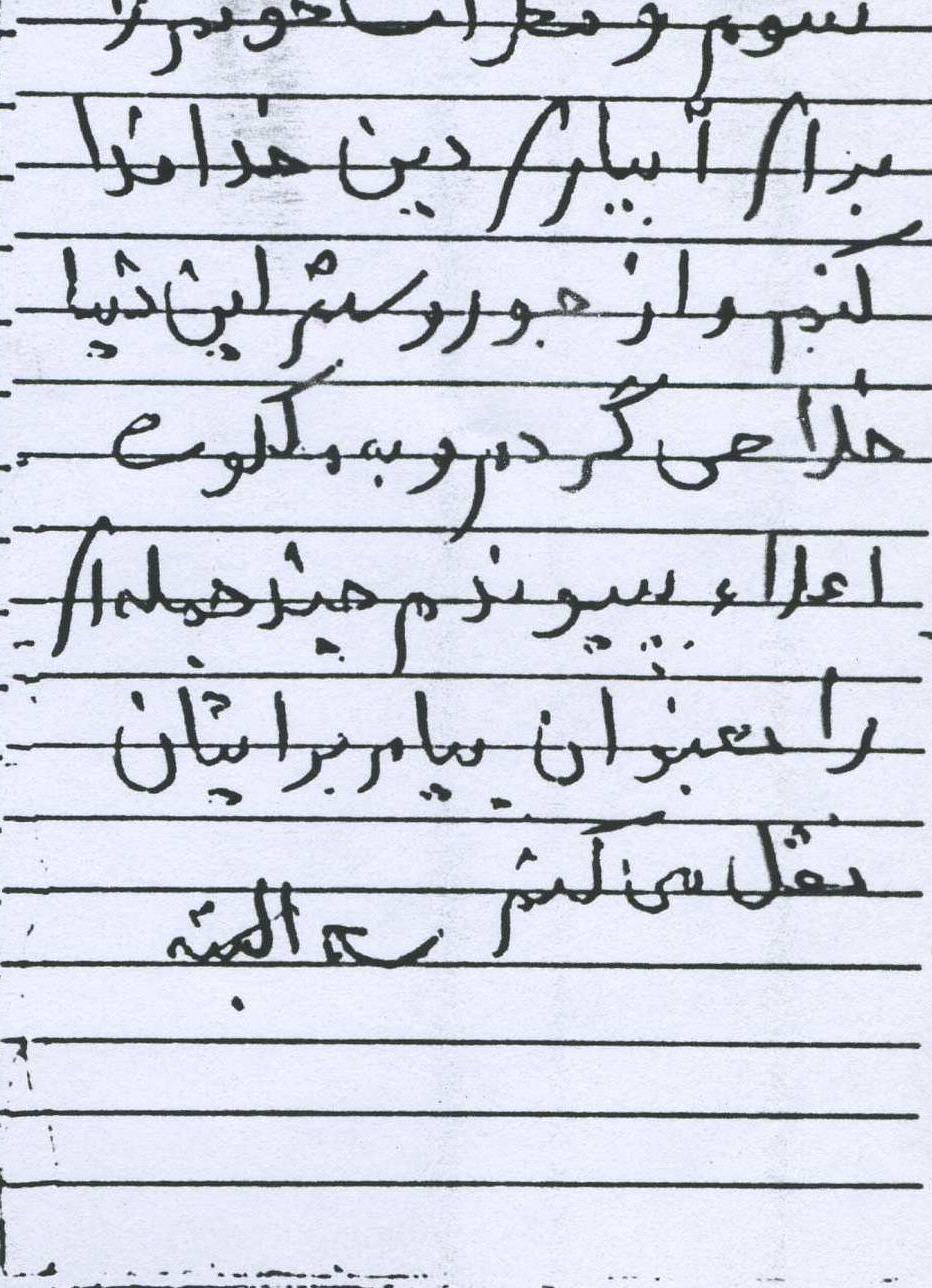 شوم و قطرات خونم را
برای آبیاری دین خدا فدا
کنم و از جور و ستم این دنیا
خلاص گردم و به ملکوت
اعلاء بپیوندم چند جمله ای
را بعنوان پیام برایتان
نقل می کنم
البته